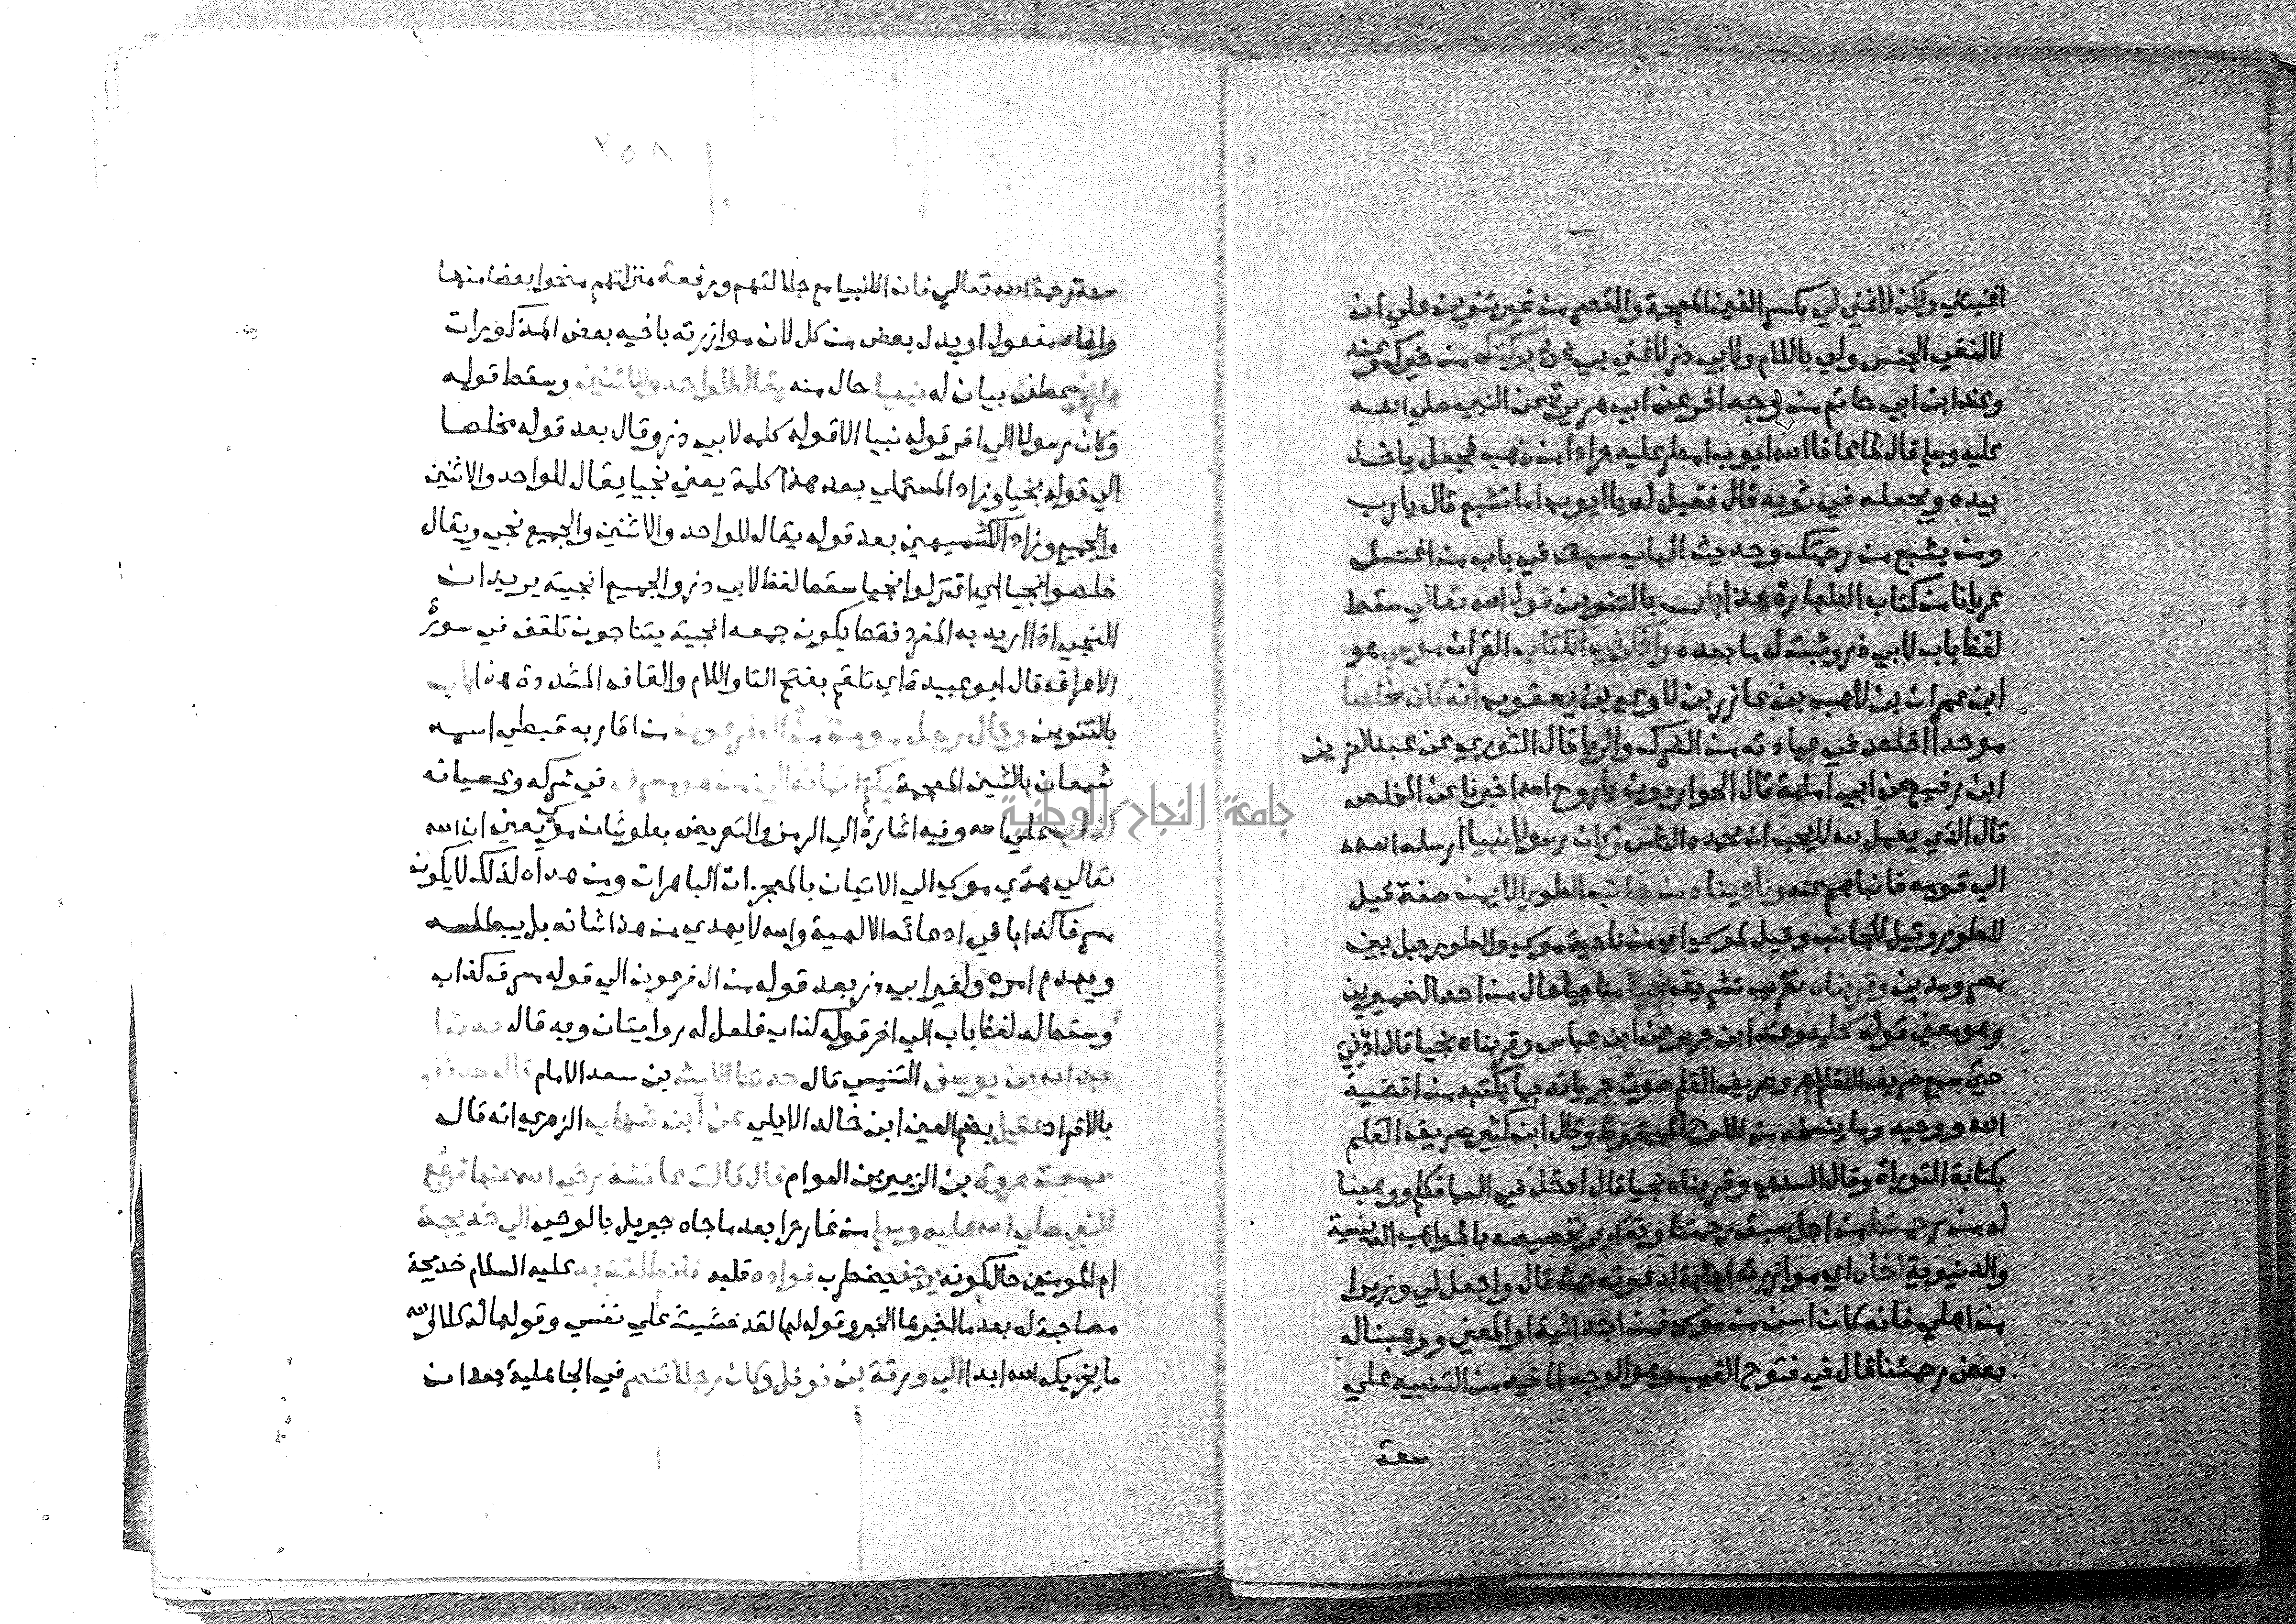 اغنيتك ولكن لا غني لي بكسر الغين المعجمة والقصر من غير تنوين علي ان
لا لنفي الجنس ولي باللام ولابي ذر لا غني بي عن بركتك من خيرك وعند
وعند ابن ابي حاتم من وجه اخر عن ابي هريرة عن النبي صلي الله
عليه وسلم قال لما عافا الله ايوب امطر عليه جرادا من ذهب فجعل ياخذ
بيده ويجعله في ثوبه قال فقيل له يا ايوب اما تشبع قال يا رب
ومن يشبع من رحمتك وحديث الباب سبق في باب من اغتسل
عريانا من كتاب الطهارة هذا باب بالتنوين قول الله تعالي سقط
لفظ باب لابي ذر وثبت له ما بعده واذكر في الكتاب القران موسي هو
ابن عمران بن لاهب بن عازر بن لاوي بن يعقوب انه كان مخلصا
موحدا اخلص في عبادته من الشرك والريا قال الثوري عن عبد العزيز بن
ابن رفيع عن ابي امامة قال الحواريون يا روح الله اخبرنا عن المخلص
قال الذي يعمل لله لا يحب ان يحمده الناس وكان رسولا نبيا ارسله الله
الي قومه فانباهم عنه وناديناه من جانب الطور الايمن صفة قيل
للطور وقيل للجانب وقيل لموسي اي من ناحية موسي والطور جبل بين
مصر ومدين وقربناه تقريب تشريف نجيا مناجيا حال من احد الضميرين
وهو معني قوله كلمه وعند ابن جرير عن ابن عباس وقربناه نجيا قال ادني
حتي سمع صريف القلم اهـ وصريف القلم صوت جريانه بما يكتبه من اقضية
الله ووحيه وما ينسخه من اللوح المحفوظ وقال ابن كثير صريف القلم
بكتابة التوراة وقال السدي وقربناه نجيا قال ادخل في السما فكلم ووهبنا
له من رحمتنا من اجل سبق رحمتنا وتقدير تخصيصه بالمواهب الدينية
والدنيوية اخاه اي موازرته اجابة لدعوته حيث قال واجعل لي وزيرا
من اهلي فانه كان اسن من موسي فمن ابتدائية او المعني ووهبنا له
بعض رحمتنا قال في فتوح الغيب وهو الوجه لما فيه من التنبيه علي
سعة
٢٥٨
سعة رحمة الله تعالي فان الانبيا مع جلالتهم ورفعة منزلتهم منحوا بعضا منها
واخاه مفعول او بدل بعض من كل لان موازرته باخيه بعض المذكورات
هارون عطف بيان له نبيا حال منه يقال للواحد وللاثنين وسقط قوله
وكان رسولا الي اخر قوله نبيا الا قوله كلمه لابي ذر وقال بعد قوله مخلصا
الي قوله نجيا وزاد المستملي بعد هذا كلمة يعني نجيا يقال للواحد والاثنين
والجميع وزاد الكشميهني بعد قوله يقال للواحد والاثنين والجميع نجي ويقال
خلصوا نجيا اي اعتزلوا نجيا سقط لفظ لابي ذر والجميع انجية يريد ان
النجي اذا اريد به المفرد فقط يكون جمعه انجية يتناجون تلقف في سورة
الاعراف قال ابو عبيدة اي تلقم بفتح التا واللام والقاف المشددة هذا باب
بالتنوين وقال رجل مومن من ال فرعون من اقاربه قبطي اسمه
شمعان بالشين المعجمة يكتم ايمانه الي من هو مسرف في شركه وعصيانه
كذاب علي الله وفيه اشارة الي الرمز والتعريض بعلو شان موسي يعني ان الله
تعالي هدي موسي الي الاتيان بالمعجزات الباهرات ومن هداه لذلك لا يكون
مسرفا كذابا في ادعائه الالهية والله لا يهدي من هذا شانه بل يبطله
ويهدم امره ولغير ابي ذر بعد قوله من ال فرعون الي قوله مسرف كذاب
وسقط له لفظ باب الي اخر قوله كذاب فلعل له روايتان وبه قال حدثنا
عبد الله بن يوسف التنيسي قال حدثنا الليث بن سعد الامام قال حدثني
بالافراد عقيل بضم العين ابن خالد الايلي عن ابن شهاب الزهري انه قال
سمعت عروة بن الزبير بن العوام قال قالت عائشة رضي الله عنها فرجع
النبي صلي الله عليه وسلم من غار حرا بعد ما جاه جبريل بالوحي الي خديجة
ام المومنين حال كونه يرجف يضطرب فواده قلبه فانطلقت به عليه السلام خديجة
مصاحبة له بعد ما اخبرها الخبر وقوله لها لقد خشيت علي نفسي وقولها له كلا والله
ما يخزيك الله ابدا الي ورقة بن نوفل وكان رجلا تنصر في الجاهلية بعد ان
جامعة النجاح الوطنية